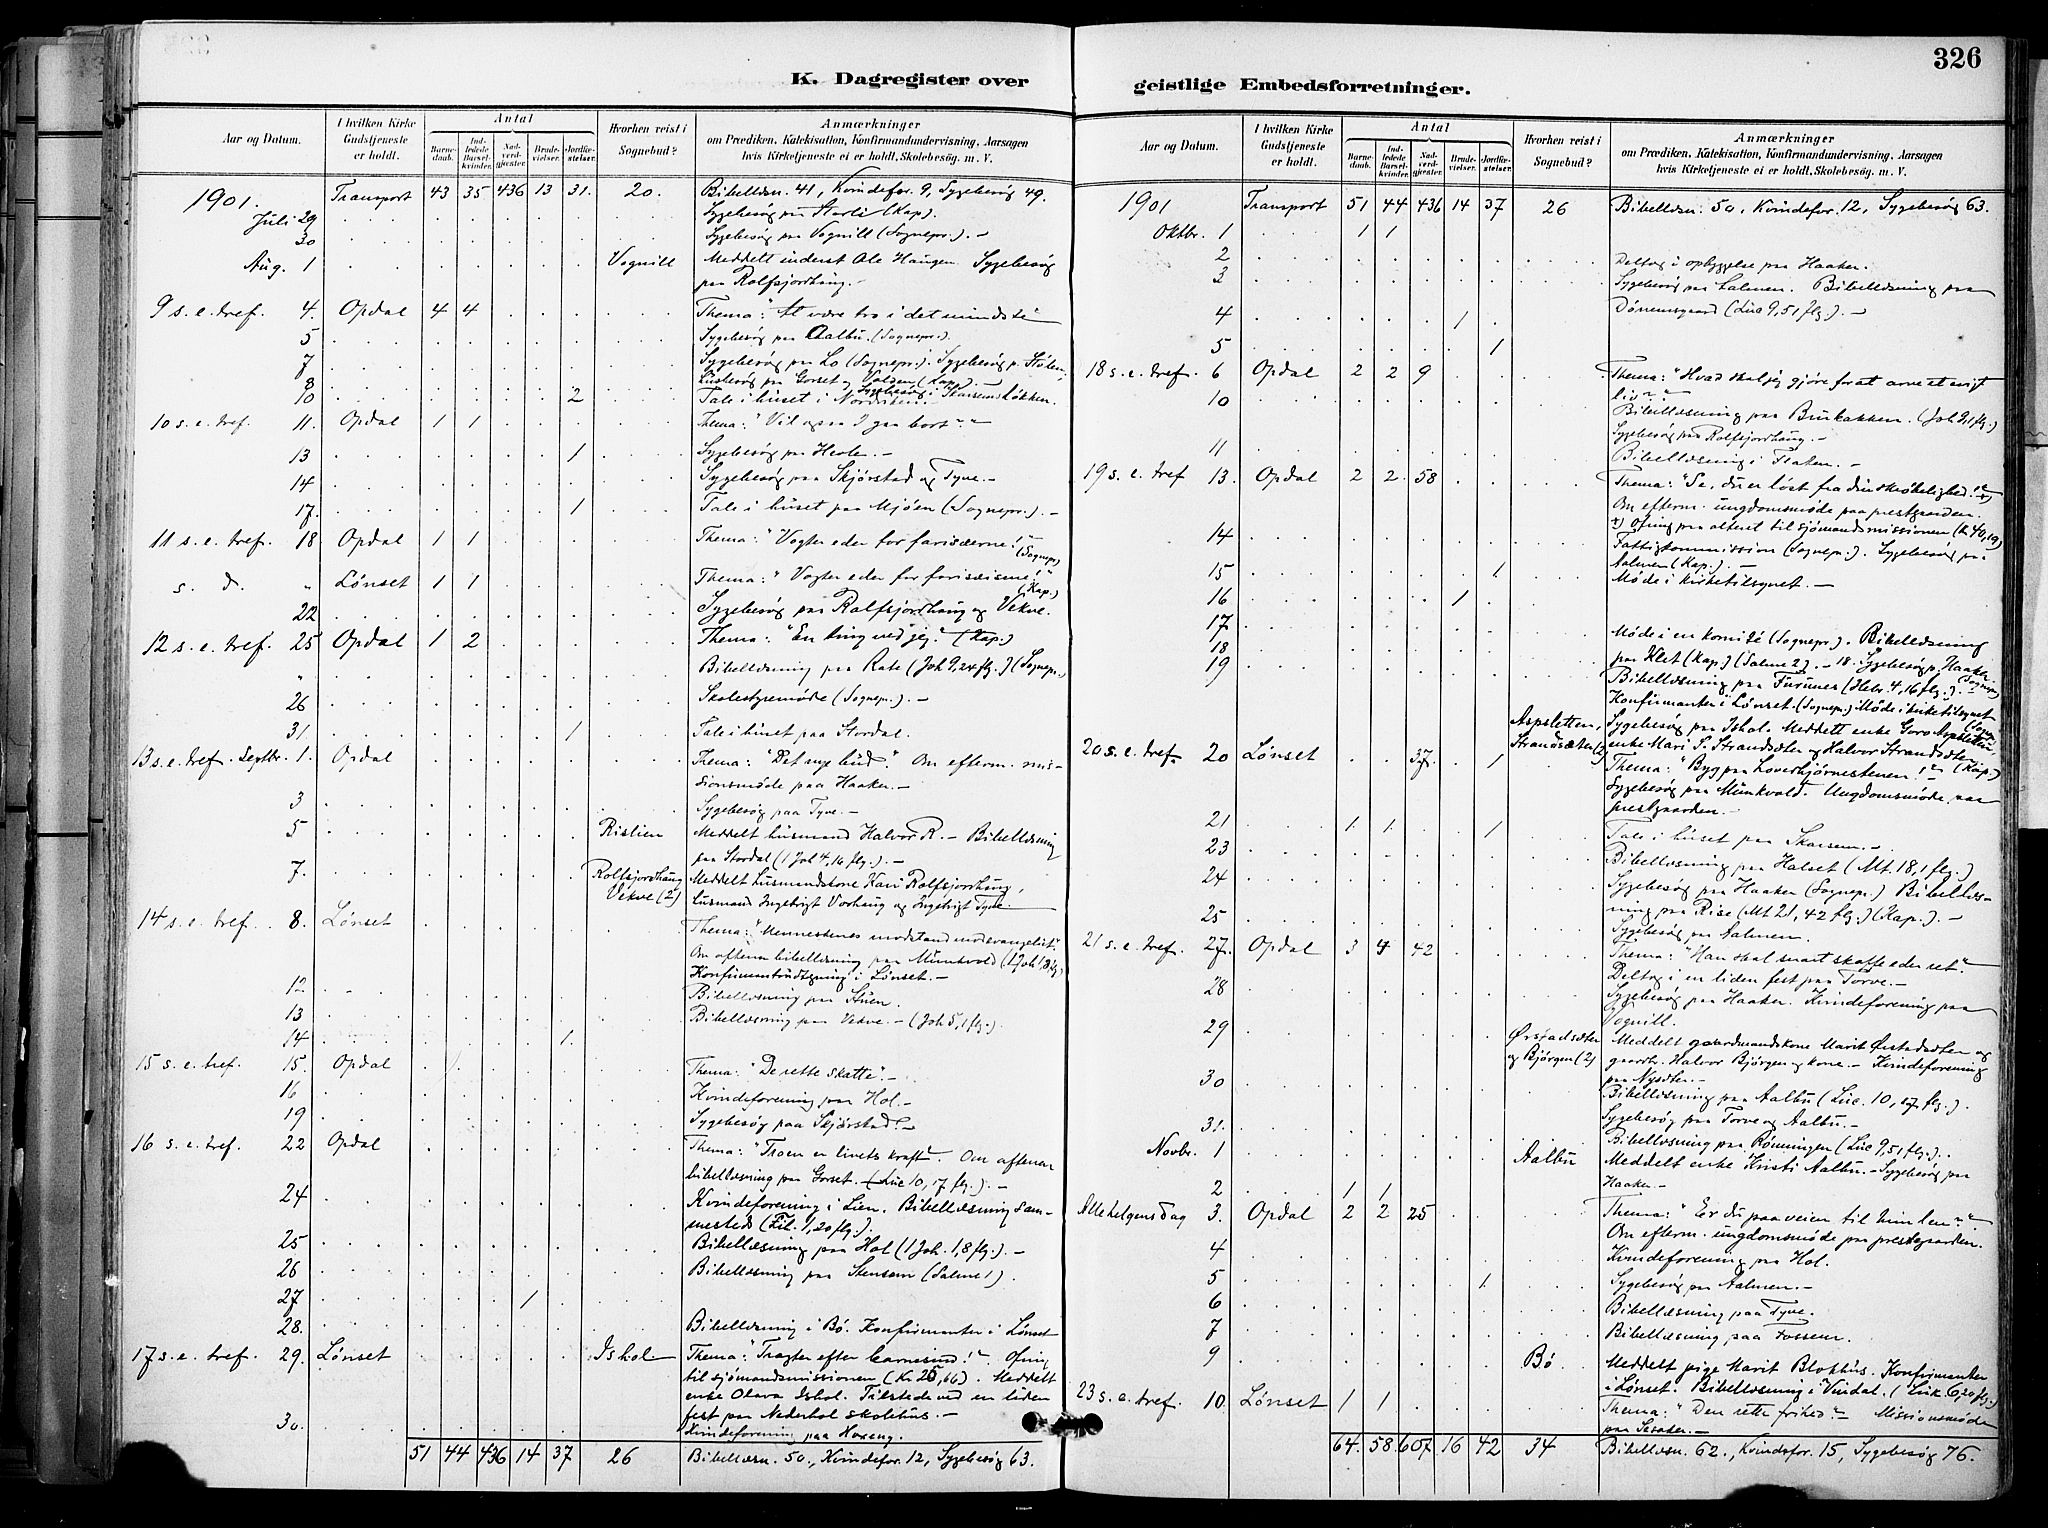 326
K. Dagregister over
geistlige Embedsforretninger.
Aar og Datum. I hvilken Kirke Gudstjeneste er holdt. Antal Barnedaab. Indledede Barselkvinder. Nadverdgjester. Brudevielser. Jordfæstelser. Hvorhen reist i Sognebud? Anmærkninger om Prædiken, Katekisation, Konfirmandundervisning, Aarsagen hvis Kirketjeneste ei er holdt, Skolebesøg. m. V.
1901. Transport 43 35 436 13 31. 20. Bibellæsn. 41, Kvindefor. 9, Sygebesøg 49.
Juli 29 Sygebesøg paa Storli (Kap).
30 Sygebesøg paa Vognill (Sognepr.). -
Aug. 1 Vognill Meddelt inderst Ole Haugen. Sygebesøg
paa Rolfsjordhaug. -
9 s. e. tref. 4. Opdal 4 4 Thema: "At være tro i det mindste"
5 Sygebesøg paa Aalbu. (Sognepr.).
7 Sygebesøg paa Lo (Sognepr.). Sygebesøg p. Stølen,
8 Husbesøg paa Gorset og (Kap). -
10 2 Tale i huset i Sygebesøg i Skarsemsløkken.
10 s. e. tref. 11. Opdal 1 1 Thema: "Vil ogsaa I gaa bort?"
13 1 Sygebesøg paa Hevle. -
14 Sygebesøg paa Skjørstad og Tyve. -
17. 1 Tale i huset paa Mjøen (Sognepr.). -
11 s. e. tref. 18 Opdal 1 1 Thema: "Vogter eder for farisæerne!" (Sognepr)
s. d. " Lønset 1 1 Thema: "Vogter eder for farisæerne!" (Kap.)
22 Sygebesøg paa Rolfsjordhaug og Vekve.
12 s. e. tref. 25 Opdal 1 2 Thema: "En ting ved jeg." (Kap.)
" Bibellæsning paa Rate (Joh 9,24 flg.) (Sognepr.)
26 Skolestyremøde (Sognepr.). -
31. 1 Tale i huset paa Stordal.
13 s. e. tref. Septbr. 1. Opdal Thema: "Det nye bud". Om efterm. mis-
sionsmøde paa Haaker. -
3 Sygebesøg paa Tyve. -
5 Rislien Meddelt husmand Halvor R. - Bibellæsning
paa Stordal (1 Joh 4,16 flg.). -
7. Rolfsjordhaug Meddelt husmandskone Kari Rolfsjordhaug,
Vekve (2) husmand Ingebrigt Vorhaug og Ingebrigt Tyve.
14 s. e. tref. 8. Lønset Thema: "Menneskenes modstand mod evangeliet".
Om aftenen bibellæsning paa Munkvold (1 Joh 1,8 flg)
Konfirmantudtegning i Lønset. -
12. Bibellæsning paa Stuen.
13 Bibellæsning paa Vekve. - (Joh 5,1 flg.).
14 1.
15 s. e. tref. 15. Opdal Thema: "De rette skatte". -
16 Kvindeforening paa Hol. -
19 Sygebesøg paa Skjørstad. -
16 s. e. tref. 22 Opdal Thema: "Troen er livets kraft". Om aftenen
bibellæsning paa Gorset. (Luc 10,17 flg.). -
24 Kvindeforening i Lien. Bibellæsning sam-
mesteds (Fil. 1,20 flg.).
25 Bibellæsning paa Hol (1 Joh. 1,8 flg.). -
26 Bibellæsning paa Stensem (Salme 1).
27 1
28. Bibellæsning i Bø. Konfirmanter i Lønset
17 s. e. tref. 29. Lønset Ishol Thema: "Tragter efter barnesind!" Ofring
til sjømandsmissionen (Kr. 25,66). Meddelt
enke Olava Ishol. Tilstede ved en liden
fest paa Nederhol skolehus. -
30. Kvindeforening paa Hoxeng.
51 44 436 14 37 26 Bibellæsn. 50., Kvindefor. 12, Sygebesøg 63.
Aar og Datum. I hvilken Kirke Gudstjeneste er holdt. Antal Barnedaab. Indledede Barselkvinder. Nadverdgjester. Brudevielser. Jordfæstelser. Hvorhen reist i Sognebud? Anmærkninger om Prædiken, Katekisation, Konfirmandundervisning, Aarsagen hvis Kirketjeneste ei er holdt, Skolebesøg. m. V.
1901 Transport 51 44 436 14 37 26 Bibellæsn. 50, Kvindefor. 12, Sygebesøg 63.
Oktbr. 1 1 1
2 Deltog i opbyggelse paa Haaker.
3 Sygebesøg paa Aalmen. Bibellæsning paa
4 1 Dørremsgaard (Luc 9,51 flg.). -
5 1
18 s. e. tref. 6 Opdal 2 2 9 Thema: "Hvad skal jeg gjøre for at arve et evigt
liv?"
10 Bibellæsning paa Brukakken. (Joh 3,1 flg.)
Sygebesøg paa Rolfsjordhaug. -
11 Bibellæsning i Flaten. -
19 s. e. tref 13. Opdal 2 2. 58 Thema: "Se, du er løst fra din skrøbelighed!" +)
Om efterm. ungdomsmøde paa prestgaarden.
+) Ofring paa alteret til sjømandsmissionen (Kr 40,19)
14 Fattigkommission (Sognepr.). Sygebesøg paa
Aalmen (Kap.). -
15 1. Møde i kirketilsynet. -
16 1
17. Møde i en komité (Sognepr.). Bibellæsning
18 paa Klet (Kap) (Salme 2). - 18. Sygebesøg p. Haaker.
19 Bibellæsning paa Furunes (Hebr. 4,16 flg.). (Sognepr)
Konfirmanter i Lønset. (Sognepr.) Møde i kirketilsynet
Aspsletten, Sygebesøg paa Ishol. Meddelt enke Goro Aspsletten,
Strandsæter (2) enke Mari S. Strandsæter og Halvor Strandsæter.
20 s. e. tref. 20 Lønset 37. 1 Thema: "Byg paa hovedhjørnestenen!" - (Kap.)
Sygebesøg paa Munkvold. Ungdomsmøde paa
prestgaarden. -
21 1. 1. 1 Tale i huset paa Skarsem. -
23 Bibellæsning paa Halset (Mt. 18,1 flg.)
24 Sygebesøg paa Haaker (Sognepr.) Bibellæs-
ning paa Rise (Mt 21, 42 flg.) (Kap.). -
25 Sygebesøg paa Aalmen.
21 s. e. tref. 27. Opdal 3 4 42 Thema: "Han skal snart skaffe eder ret".
Deltog i en liden fest paa Torve. -
28 Sygebesøg paa Haaker. Kvindeforening paa
Vognill.
29 Ørstadsæter Meddelt gaardmandskone Marit Ørstadsæter og
og Bjørgen (2) gaardbr. Halvor Bjørgen og kone. - Kvindeforening
30 paa Nysæter. -
Bibellæsning paa Aalbu (Luc. 10, 17 flg.).
31. Sygebesøg paa Torve og Aalbu. -
Bibellæsning paa Rønningen (Luc 9,51 flg.).
Novbr. 1 Aalbu Meddelt enke Kristi Aalbu. - Sygebesøg paa
2 1 1 Haaker. -
Allehelgensdag 3. Opdal 2 2 25 Thema: "Er du paa veien til himlen?"
Om efterm. ungdomsmøde paa prestegaarden.
4 Kvindeforening paa Hol.
5 1 Sygebesøg paa Aalmen. -
6 Bibellæsning paa Tyve.
7 Bibellæsning paa Fossem.
9 Bø Meddelt pige Marit Blokhus. Konfirmanter
i Lønset. Bibellæsning i Vindal. (Luk 6,20 flg.)
23 s. e. tref. 10. Lønset 1 1 Thema: "Den rette frihed". - Missionsmøde
paa
64. 58. 607. 16 42 34 Bibellæsn. 62., Kvindefor. 15, Sygebesøg 76.